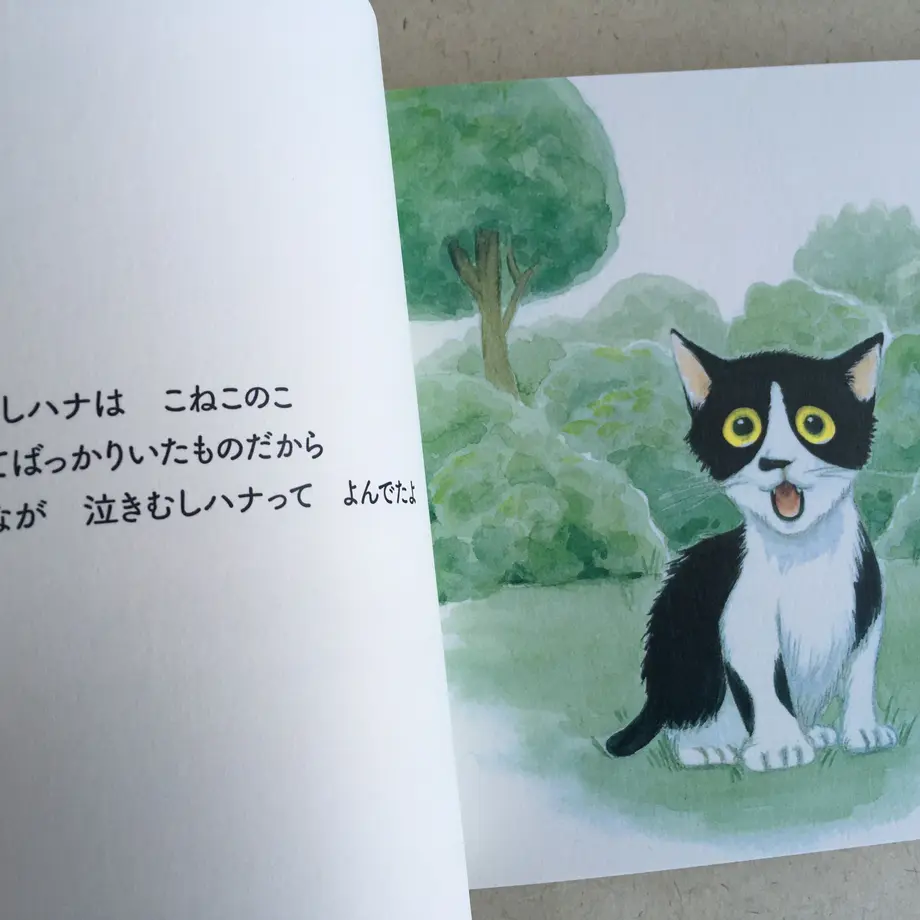 しハナは　こねこのこ
てばっかりいたものだから
なが　泣きむしハナって　よんでたよ